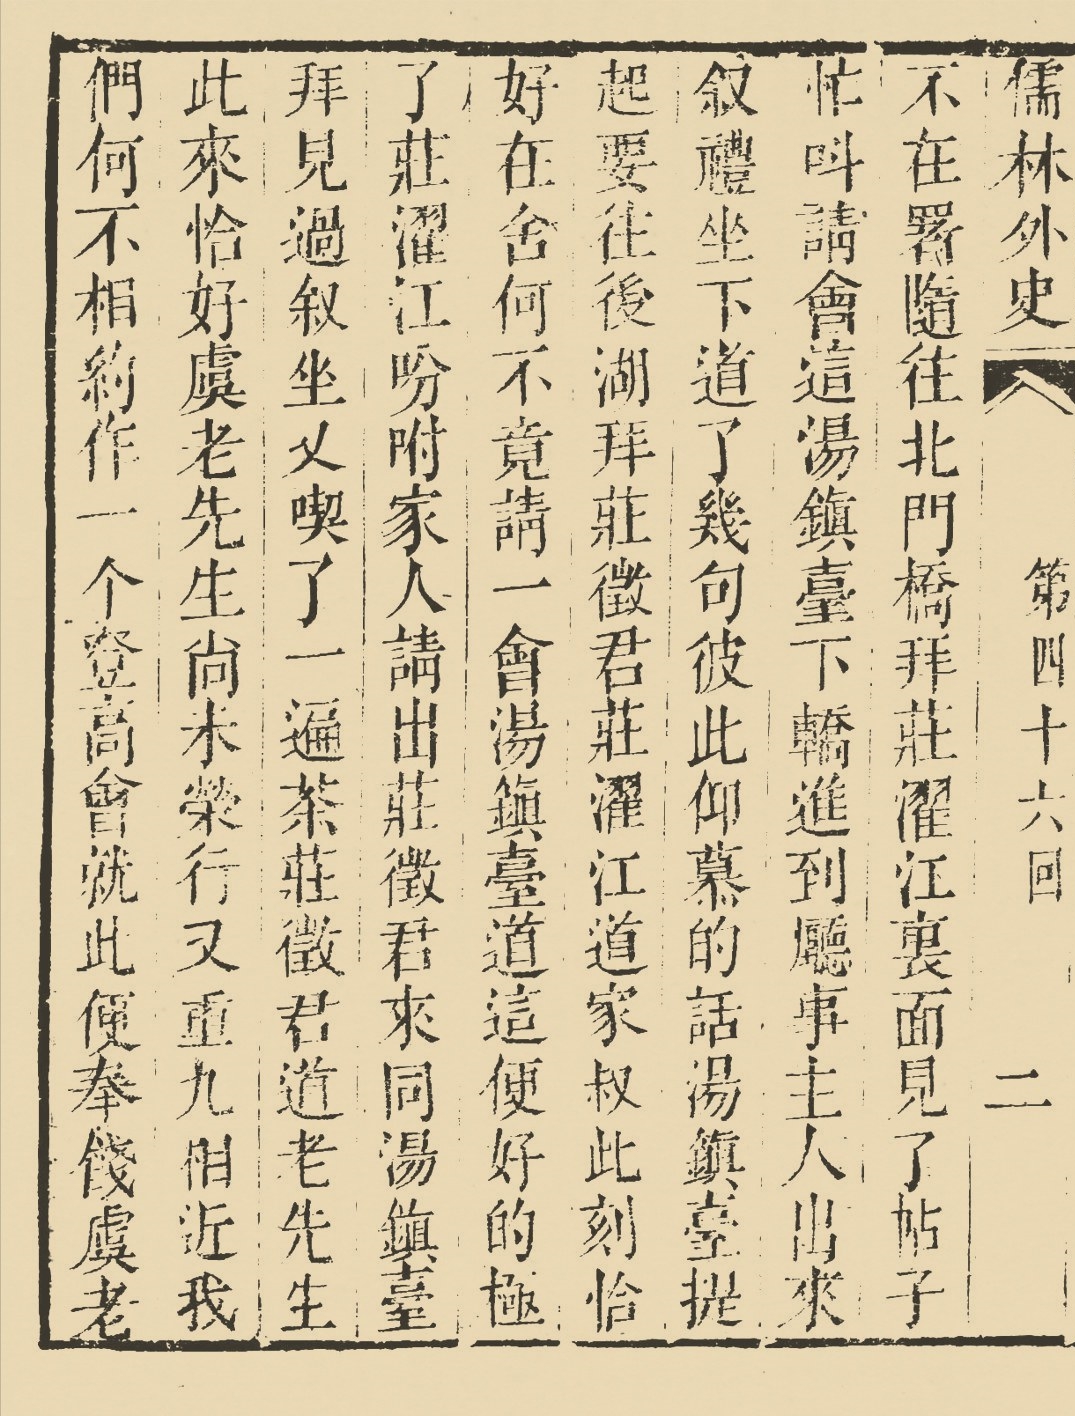 儒林外史 第四十六回 二
不在署隨往北門橋拜莊濯江裏面見了帖子
忙呌請會這湯鎮臺下轎進到廳事主人出來
叙禮坐下道了幾句彼此仰慕的話湯鎮臺提
起要往後湖拜莊徵君莊濯江道家叔此刻恰
好在舍何不竟請一會湯鎮臺道這便好的極
了莊濯江吩咐家人請出莊徵君來同湯鎮臺
拜見過叙坐乂喫了一遍茶莊徵君道老先生
此來恰好虞老先生尚未榮行又重九相近我
們何不相約作一个登高會就此便奉餞虞老